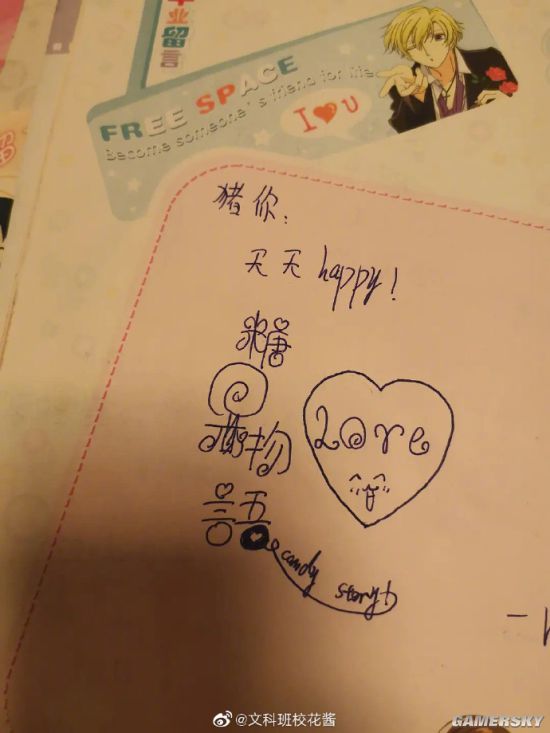 业留言
FREE SPACE
Become someone's friend for life
I ♥ U
猪你:
天天happy!
糖
果物
语
Love
candy story
@文科班校花酱
GAMERSKY